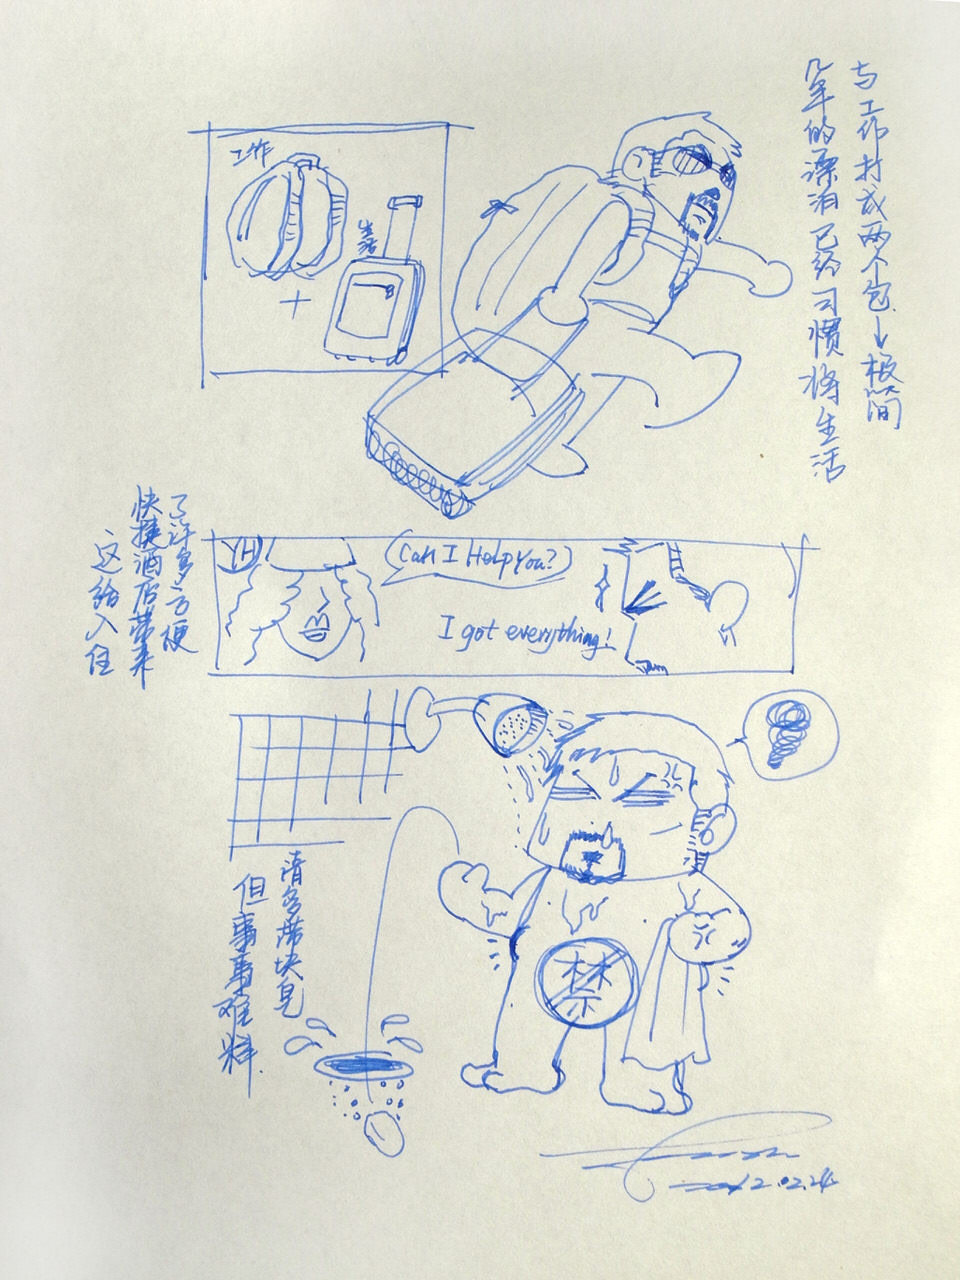 几年的漂泊已经习惯将生活
与工作打成两个包↓极简
工作
+
生活
这给入住
快捷酒店带来
了许多方便
YH
Can I Help You?
I got everything!
但事事难料.
请多带块皂
禁
2012.02.24